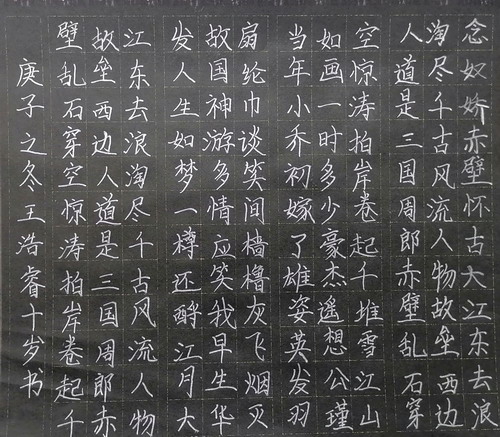 念奴娇赤壁怀古大江东去浪
淘尽千古风流人物故垒西边
人道是三国周郎赤壁乱石穿
空惊涛拍岸卷起千堆雪江山
如画一时多少豪杰遥想公瑾
当年小乔初嫁了雄姿英发羽
扇纶巾谈笑间樯橹灰飞烟灭
故国神游多情应笑我早生华
发人生如梦一樽还酹江月大
江东去浪淘尽千古风流人物
故垒西边人道是三国周郎赤
壁乱石穿空惊涛拍岸卷起千
庚子之冬王浩睿十岁书